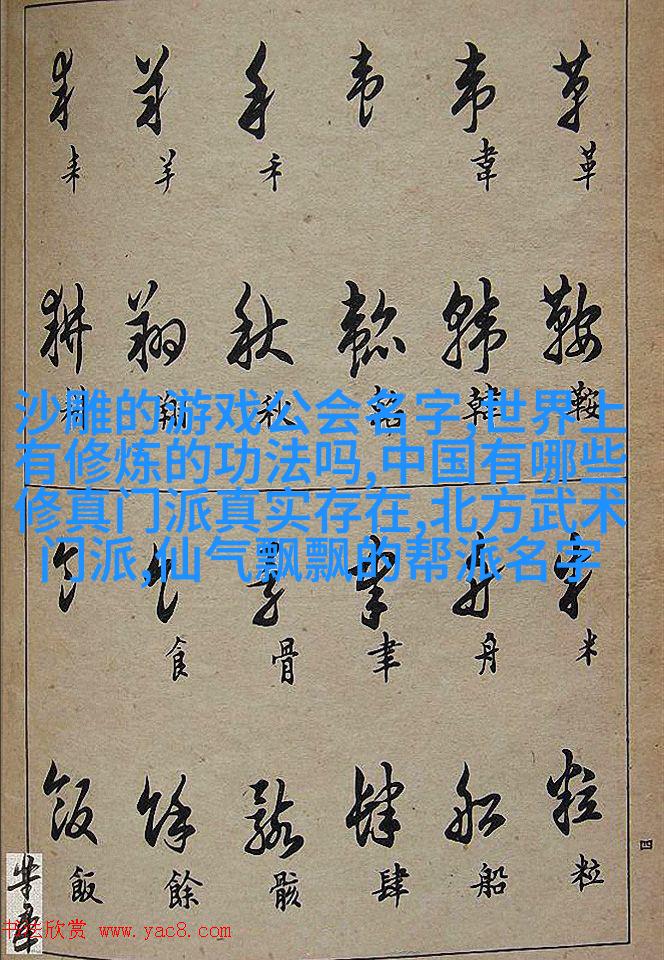 耒 羊 禾 韋 革
耕 翔 秋 韓 鞍
翔 秋 韓 鞍
沙雕的游戏公会名字,世界上
有修炼的功法吗,中国有哪些
修真门派真实存在,北方武术
门派,仙气飘飘的帮派名字
食 骨 聿 舟 米
飯 餘 骸 肆 船 粒
飯 餘 骸 肆 船 粒
四
书法欣赏 www.yac8.com